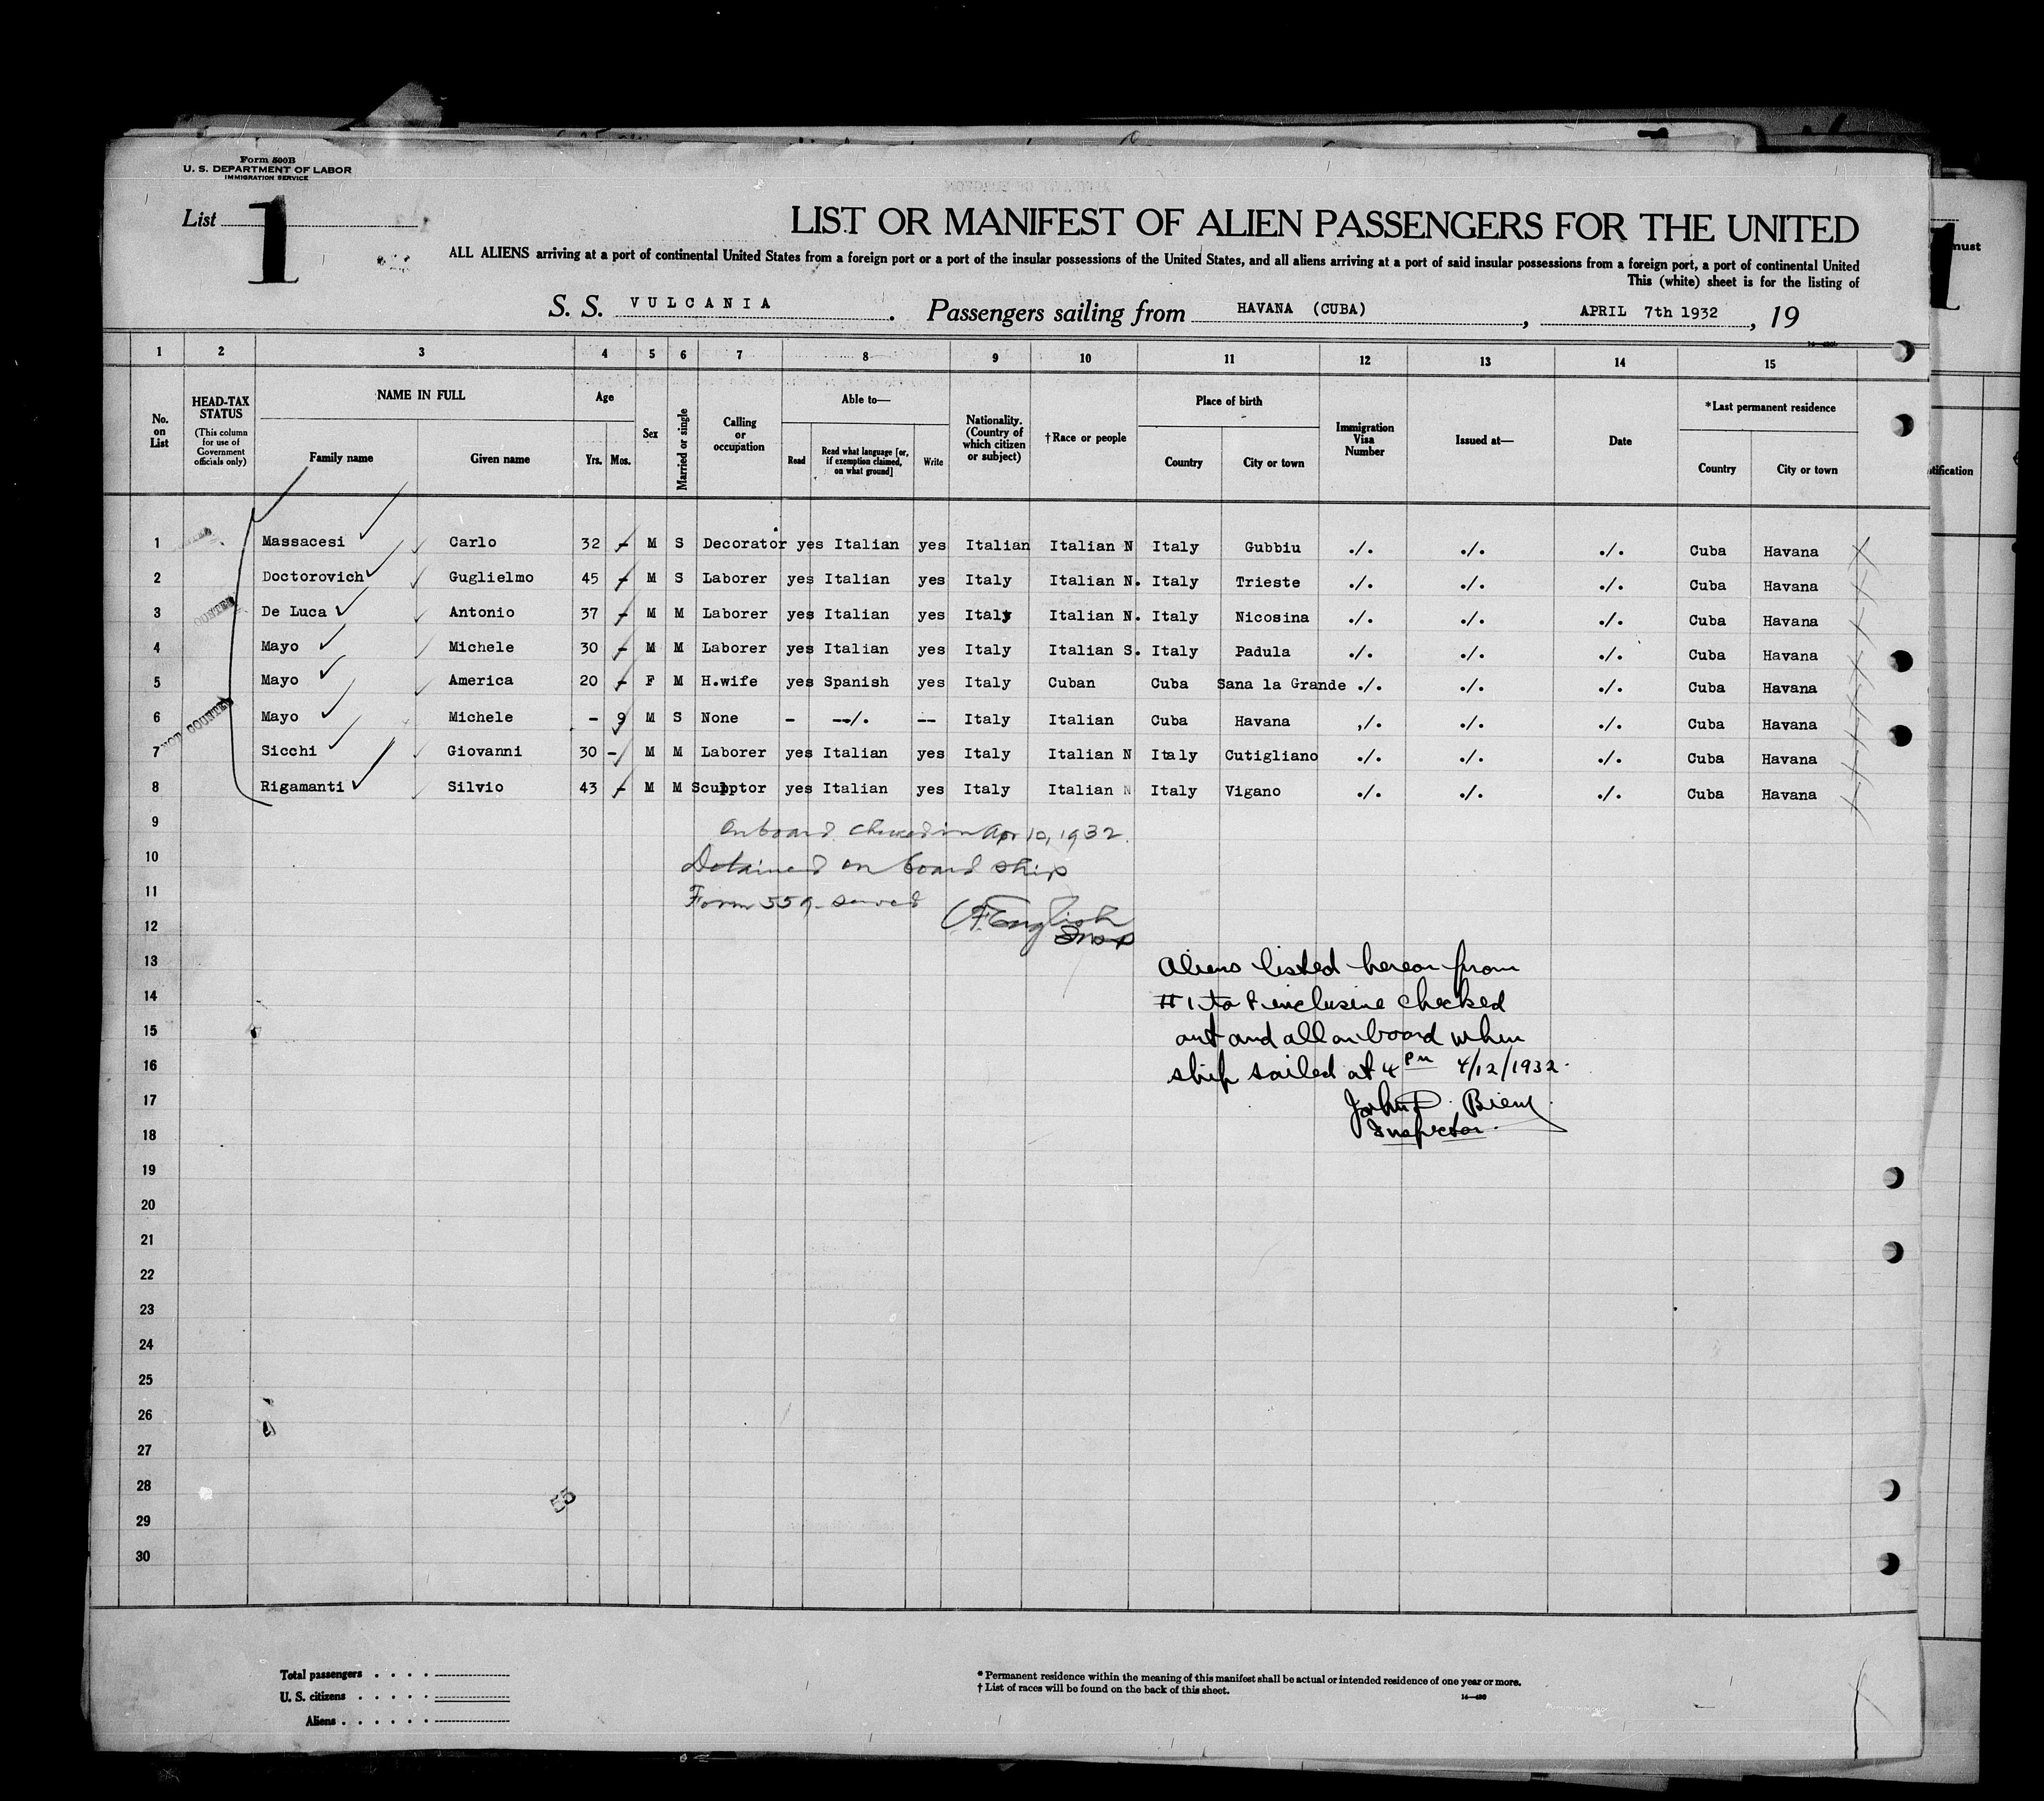 Form 500B
U. S. DEPARTMENT OF LABOR
IMMIGRATION SERVICE
List 1
LIST OR MANIFEST OF ALIEN PASSENGERS FOR THE UNITED
ALL ALIENS arriving at a port of continental United States from a foreign port or a port of the insular possessions of the United States, and all aliens arriving at a port of said insular possessions from a foreign port, a port of continental United
This (white) sheet is for the listing of
S. S. VULCANIA . Passengers sailing from HAVANA (CUBA) , APRIL 7th 1932 , 19
1 2 3 4 5 6 7 8 9 10 11 12 13 14 15
No. on List
HEAD-TAX STATUS
(This column for use of Government officials only)
NAME IN FULL
Family name Given name
Age
Yrs. Mos.
Sex
Married or single
Calling or occupation
Able to—
Read
Read what language [or, if exemption claimed, on what ground]
Write
Nationality. (Country of which citizen or subject)
†Race or people
Place of birth
Country City or town
Immigration Visa Number
Issued at—
Date
*Last permanent residence
Country City or town
1 Massacesi Carlo 32 - M S Decorator yes Italian yes Italian Italian N Italy Gubbiu ./. ./. ./. Cuba Havana
2 Doctorovich Guglielmo 45 - M S Laborer yes Italian yes Italy Italian N. Italy Trieste ./. ./. ./. Cuba Havana
3 De Luca Antonio 37 - M M Laborer yes Italian yes Italy Italian N. Italy Nicosina ./. ./. ./. Cuba Havana
4 Mayo Michele 30 - M M Laborer yes Italian yes Italy Italian S. Italy Padula ./. ./. ./. Cuba Havana
5 Mayo America 20 - F M H.wife yes Spanish yes Italy Cuban Cuba Sana la Grande ./. ./. ./. Cuba Havana
6 Mayo Michele - 9 M S None - --/. -- Italy Italian Cuba Havana ,/. ./. ./. Cuba Havana
7 Sicchi Giovanni 30 - M M Laborer yes Italian yes Italy Italian N Italy Cutigliano ./. ./. ./. Cuba Havana
8 Rigamanti Silvio 43 - M M Sculptor yes Italian yes Italy Italian N Italy Vigano ./. ./. ./. Cuba Havana
NOT COUNTED
9
On board checked in Apr 10, 1932.
10
Detained on board ship
11
Form 559 served
12
English
Insp
13
Aliens listed hereon from
14
# 1 to 8 inclusive checked
15
out and all on board when
16
ship sailed at 4 pm 4/12/1932.
17
John
18
Inspector.
19
20
21
22
23
24
25
26
27
28
29
30
55
Total passengers . . . .
U. S. citizens . . . . .
Aliens . . . . . .
* Permanent residence within the meaning of this manifest shall be actual or intended residence of one year or more.
† List of races will be found on the back of this sheet.
14—490
must
1